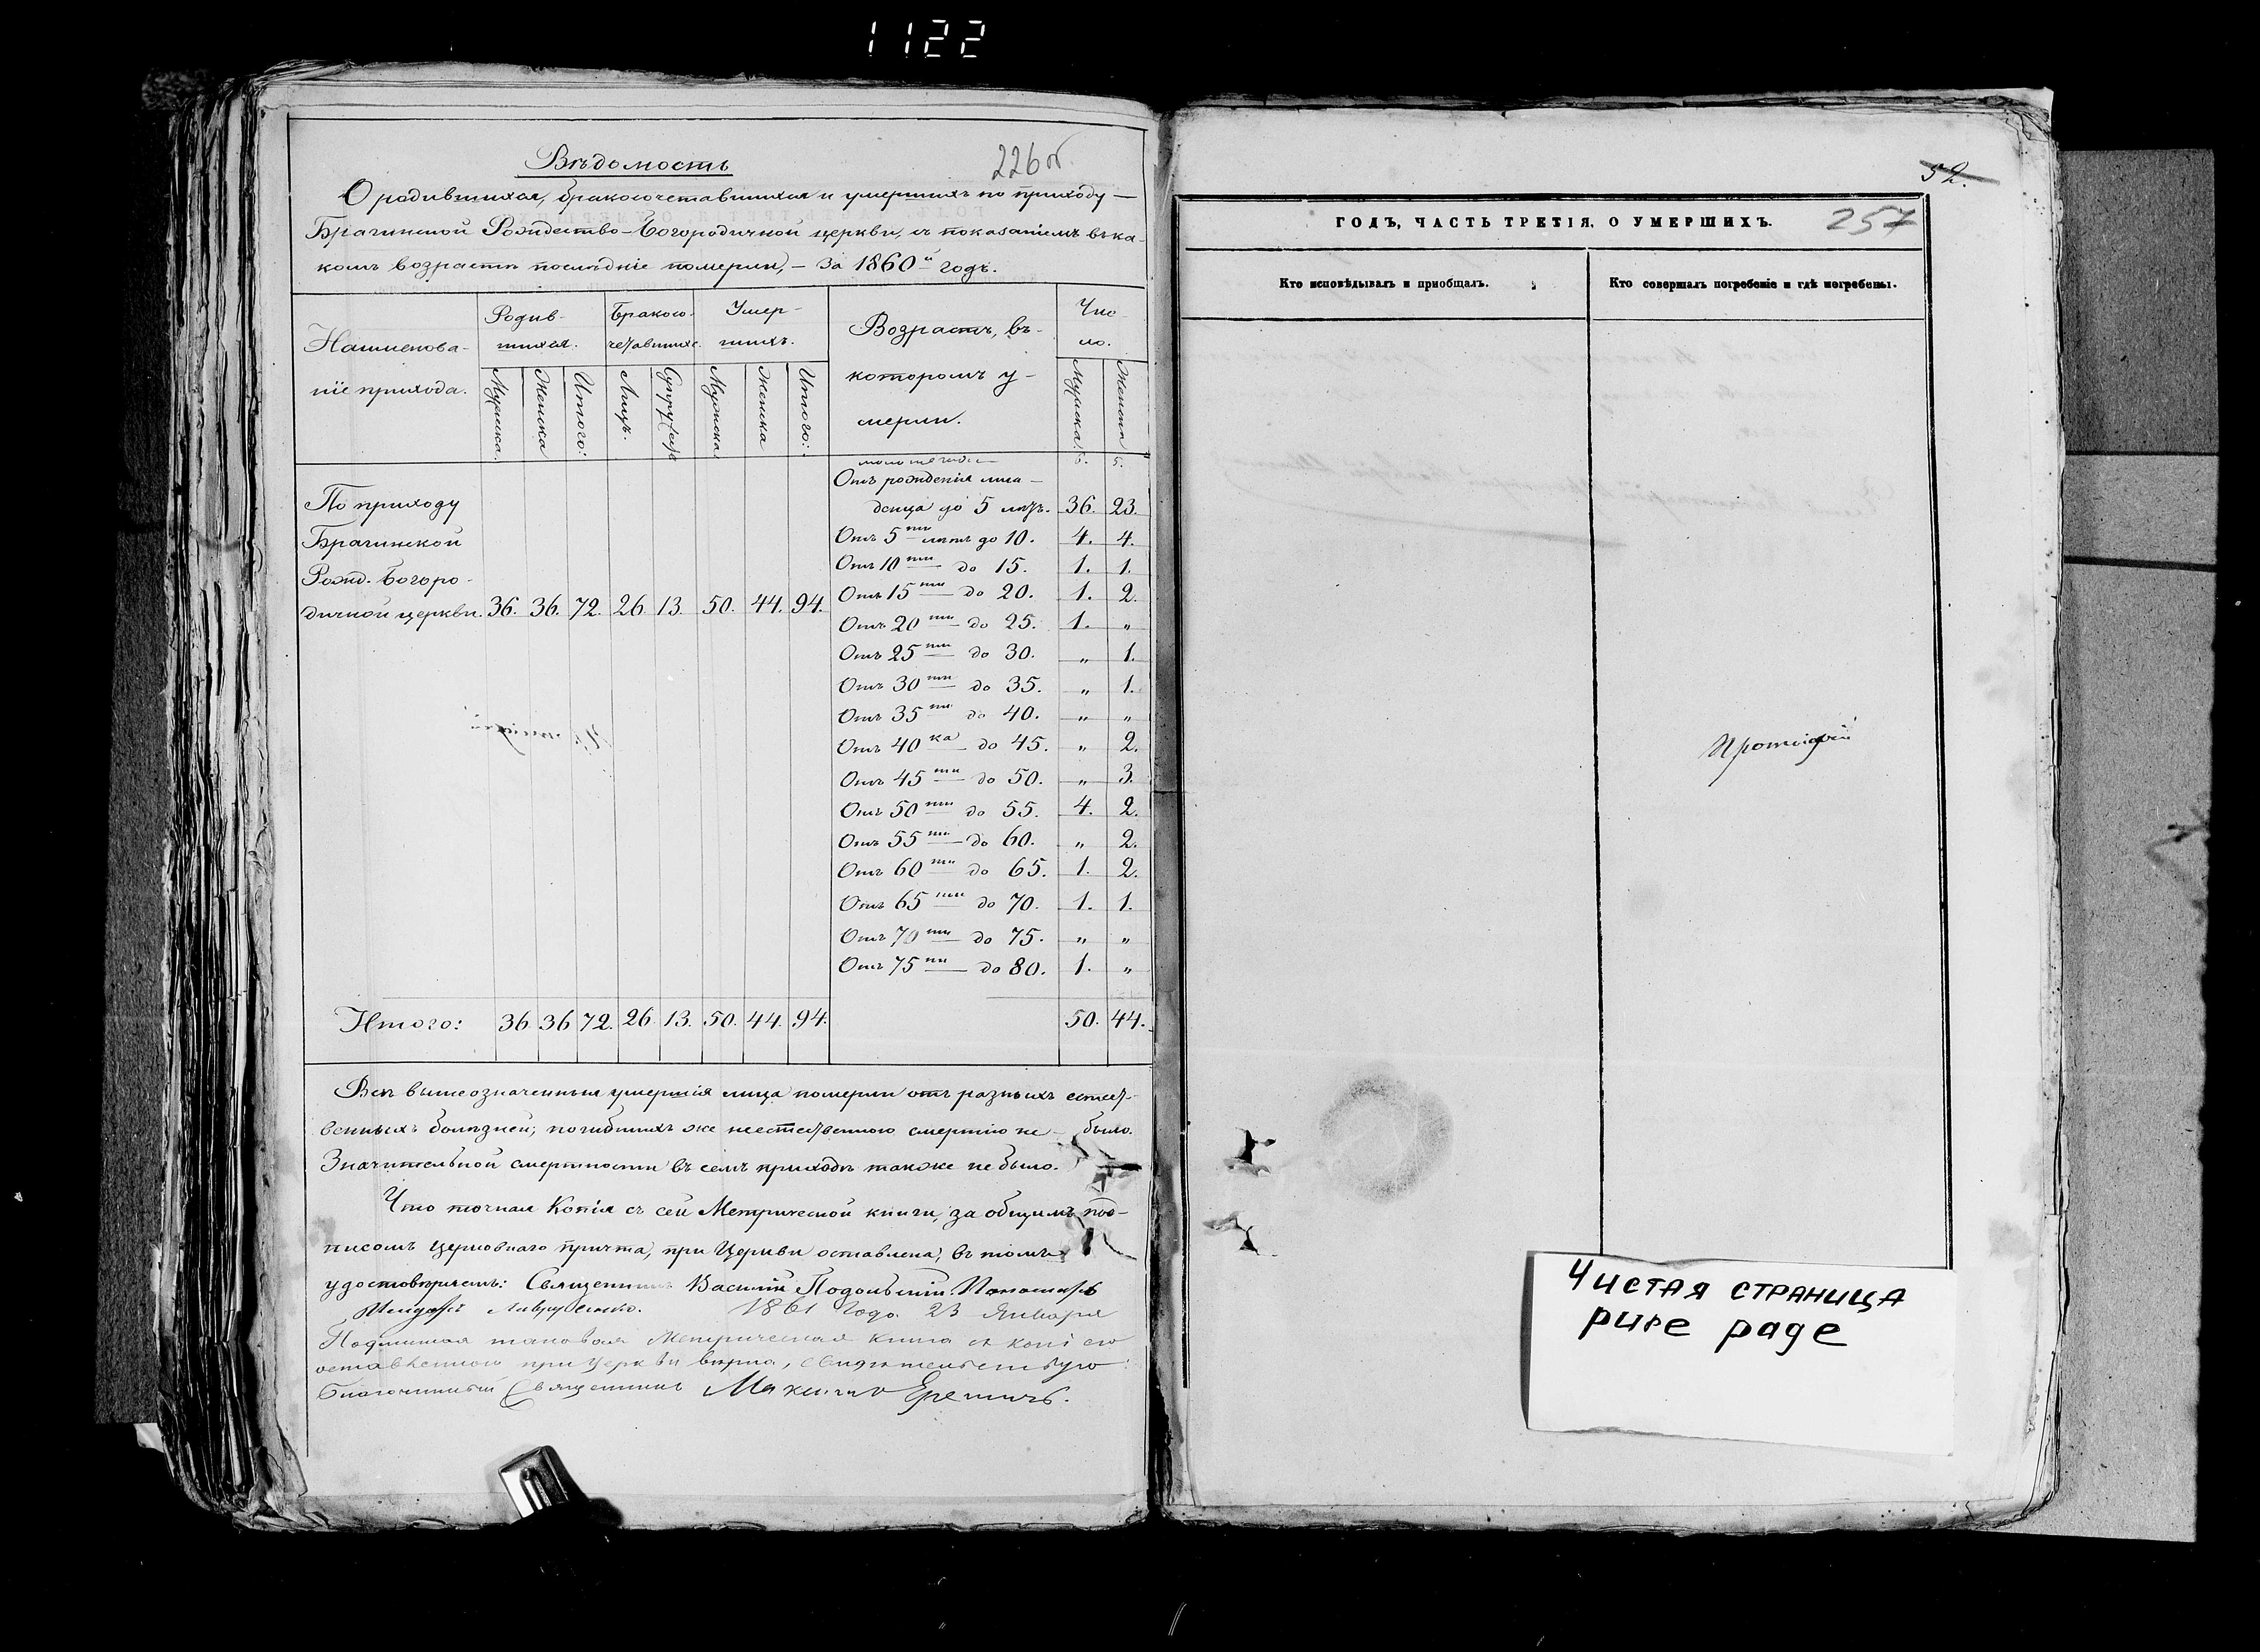 1122
226 об
Вѣдомость
О родившихся, бракосочетавшихся и умершихъ по приходу
Брагинской Рождество-Богородичной церкви, съ показаніемъ въ ка-
комъ возрастѣ послѣдніе померли, – за 1860й годъ.
Наименова-
ніе прихода.
Родив-
шихся.
Бракосо-
четавшихс.
Умер-
шихъ.
Возрастъ, въ
которомъ у-
мерли.
Чис-
ло.
Мужска. Женска Итого: Лицъ. Супруж Мужска Женска Итого: Мужска. Женска
6. 5.
Отъ рожденія мла-
денца до 5 лѣтъ. 36. 23.
Отъ 5ти лѣтъ до 10. 4. 4.
Отъ 10ти до 15. 1. 1.
Отъ 15ти до 20. 1. 2.
Отъ 20ти до 25. 1. „
Отъ 25ти до 30. „ 1.
Отъ 30ти до 35. „ 1.
Отъ 35ти до 40. „ „
Отъ 40ка до 45. „ 2.
Отъ 45ти до 50. „ 3.
Отъ 50ти до 55. 4. 2.
Отъ 55ти до 60. „ 2.
Отъ 60ти до 65. 1. 2.
Отъ 65ти до 70. 1. 1.
Отъ 70ти до 75. „ „
Отъ 75ти до 80. 1. „
По приходу
Брагинской
Рожд. Богоро-
дичной церкви. 36. 36. 72. 26. 13. 50. 44. 94.
Итого: 36 36 72. 26 13. 50. 44. 94. 50. 44.
Всѣ вышеозначенныя умершія лица померли отъ разныхъ естест-
венныхъ болѣзней; погибшихъ же неестественною смертію не – было.
Значительной смертности въ семъ приходѣ также не было.
Что точная Копія съ сей Метрической книги, за общимъ под-
писомъ церковнаго причта, при Церкви оставлена, въ томъ
удостовѣряемъ: Священникъ Василій Подольскій Пономарь
1861 года 23 Января
Подлинная таковая Метрическая книга съ копіею
оставленною при Церкви вѣрна, свидѣтельствую:
Благочинный Священникъ Максимъ Еремичъ.
52.
257
ГОДЪ, ЧАСТЬ ТРЕТІЯ, О УМЕРШИХЪ.
Кто исповѣдывалъ и пріобщалъ.
Кто совершалъ погребеніе и гдѣ погребены.
Чистая страница
pure page